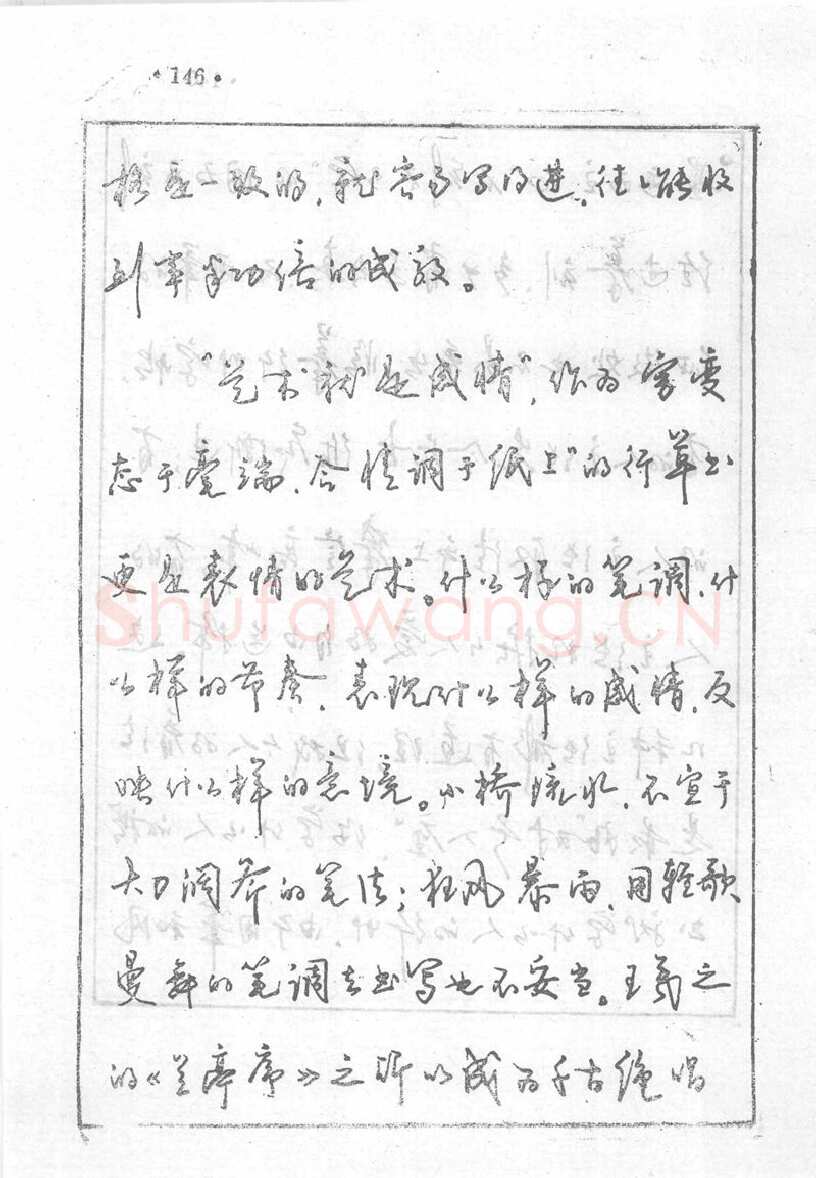 ·146·
格是一致的，就容易写的进，往往能收
到事半功倍的成效。
“艺术就是感情”，作为“穷变
态于毫端，合情调于纸上”的行草书
更是表情的艺术。什么样的笔调、什
么样的节奏，表现什么样的感情，反
映什么样的意境。小桥流水，不宜于
大刀阔斧的笔法；狂风暴雨，用轻歌
曼舞的笔调去书写也不妥当。王羲之
的《兰亭序》之所以成为千古绝唱
Shufawang.CN